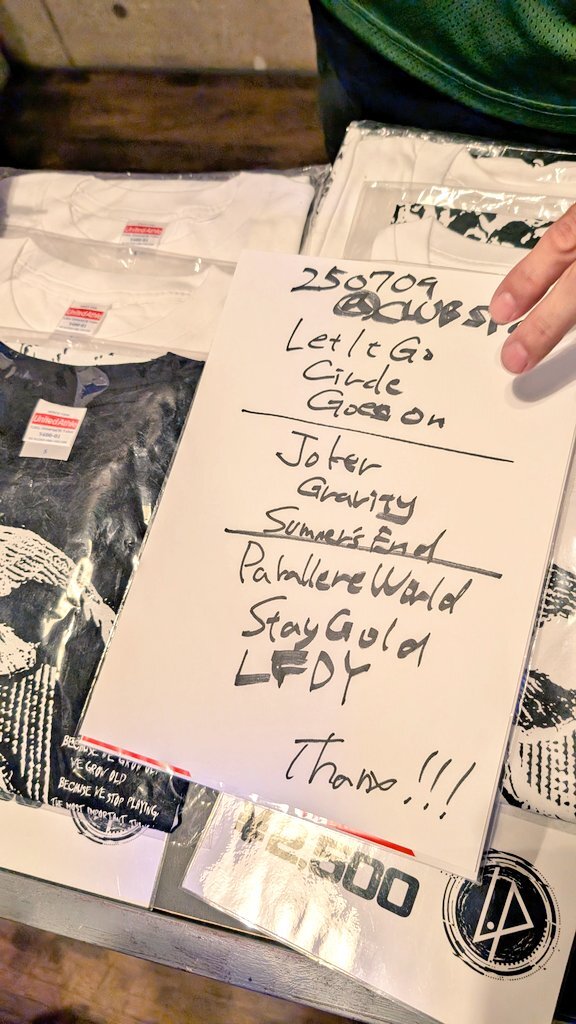 250709
@CLUB
Let It Go
Circle
Goes on
Joker
Gravity
Summer's End
Parallere World
Stay Gold
LFDY
Thanx!!!
United Athle
United Athle
United Athle
5400-01
S
BECAUSE WE GROW OLD
BECAUSE WE STOP PLAYING
THE MOST IMPORTANT
¥2,500